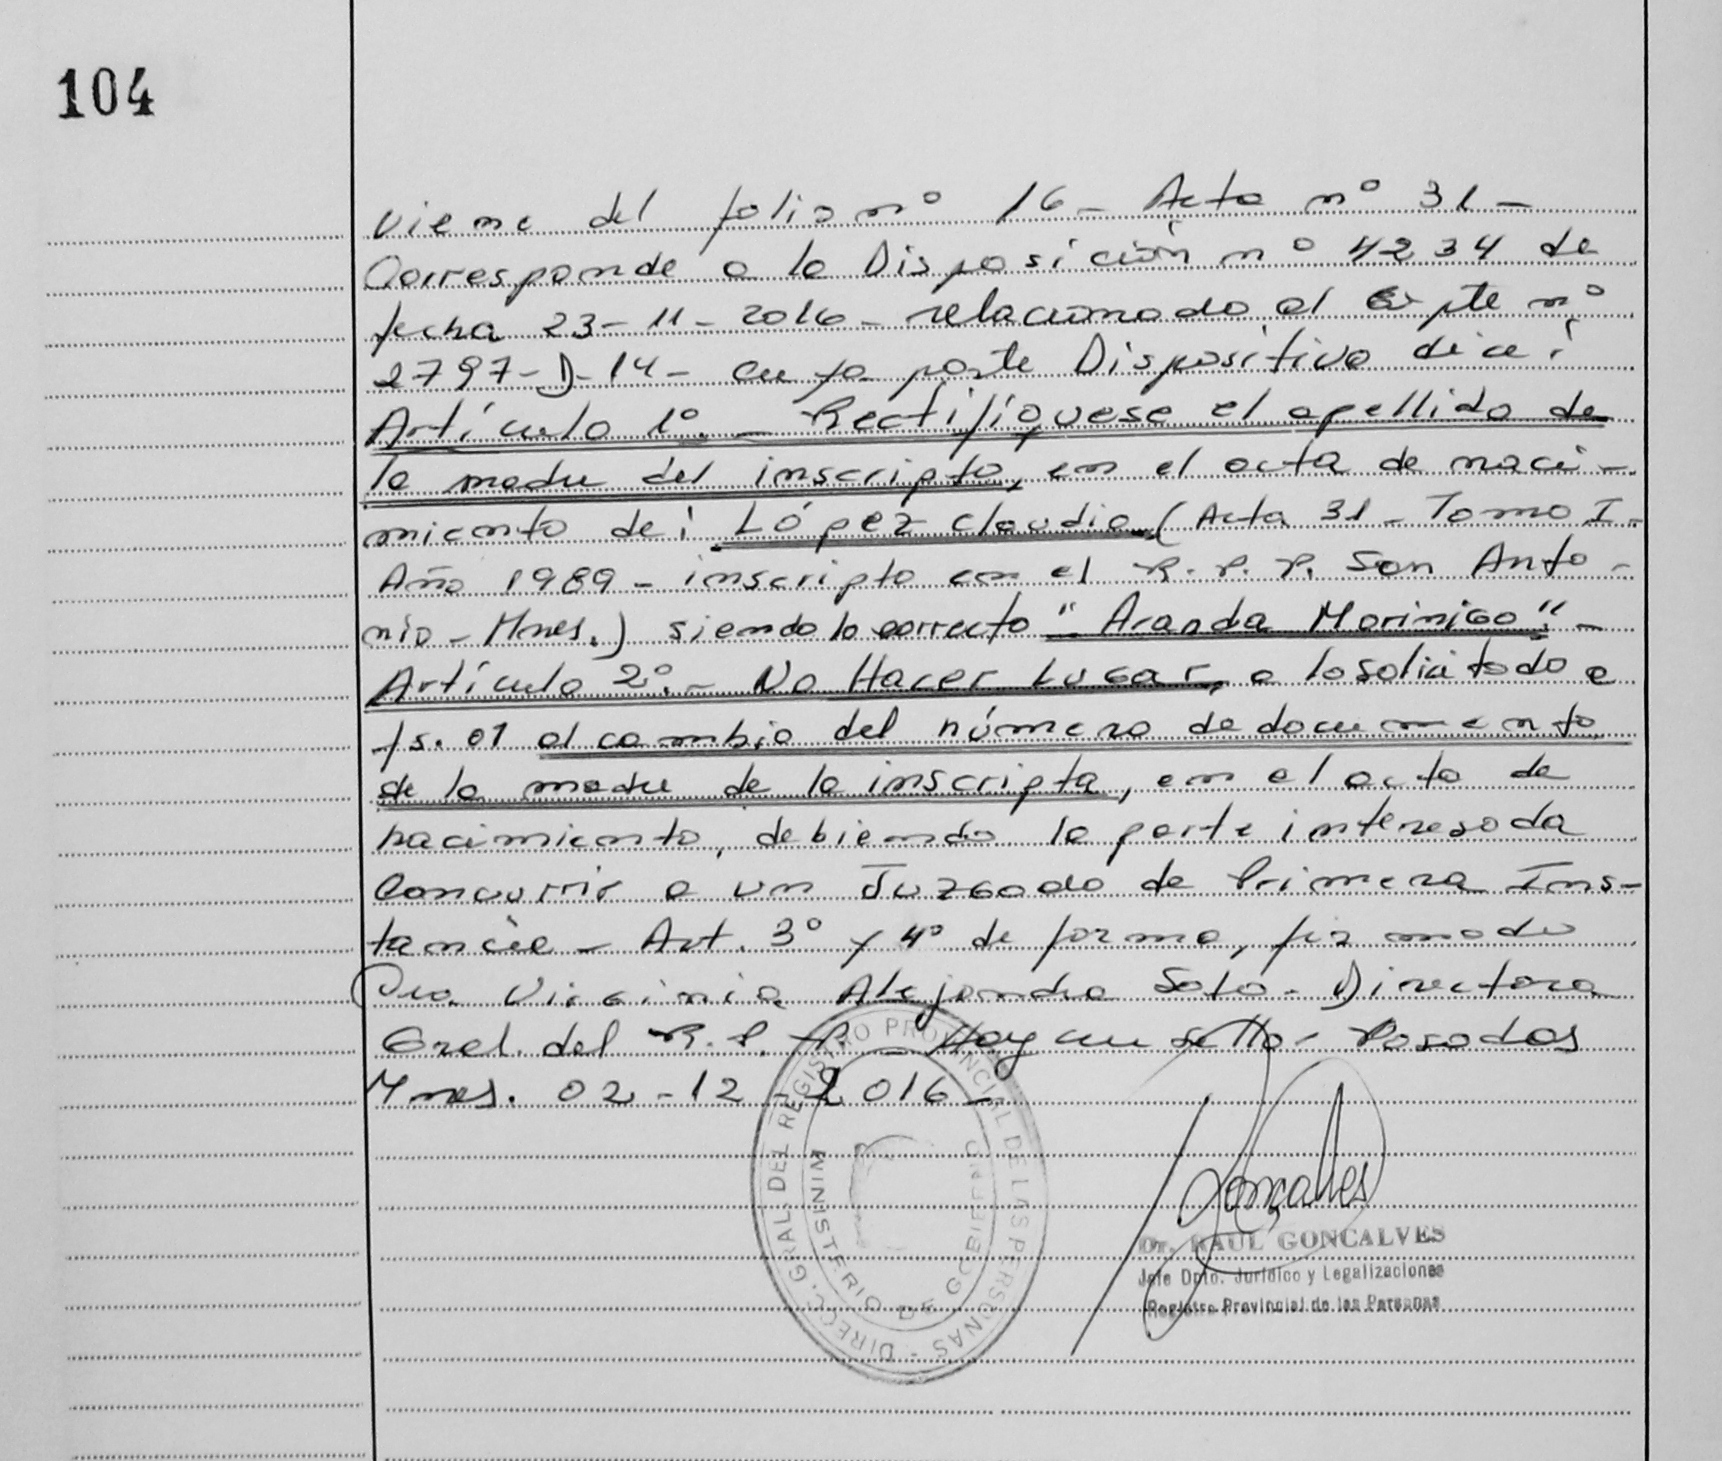 104
Viene del folio nº 16 - Acta nº 31 -
Corresponde a la Disposición nº 4234 de
fecha 23-11-2016 - relacionado al Expte nº
2797-D-14 - cuya parte Dispositiva dice:
Artículo 1º. - Rectifíquese el apellido de
la madre del inscripto, en el acta de naci-
miento de: López Claudia (Acta 31 - Tomo I -
Año 1989 - inscripto en el R.P.P. San Anto-
nio - Mnes.) siendo lo correcto "Aranda Morinigo" -
Artículo 2º. - No Hacer Lugar, a lo solicitado a
fs. 01 al cambio del número de documento
de la madre de la inscripta, en el acta de
nacimiento, debiendo la parte interesada
Concurrir a un Juzgado de Primera Ins-
tancia - Art. 3º y 4º de forma, firmado
Dra. Virginia Alejandra Soto - Directora
Gral. del R.P.P. - Hay un sello - Posadas
Mnes. 02-12-2016 -
DIRECC. GRAL. DEL REGISTRO PROVINCIAL DE LAS PERSONAS -
MINISTERIO DE GOBIERNO
Gonçalves
Dr. RAUL GONCALVES
Jefe Dpto. Jurídico y Legalizaciones
Registro Provincial de las Personas